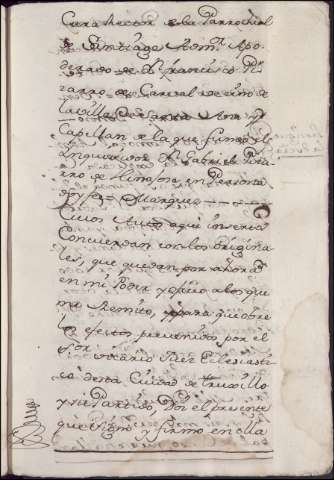 Cura Rector de la Parrochial
de Santiago Nom. Apo
derado de Dn. Francisco Pi
zarro de Carvaxal vecino de
la villa
Capellan de la que fundó el
Dn. Gabriel Piza
rro de Hinojosa en Persona
Marquez
Cuios Autos aqui insertos
Concuerdan con los origina
les, que quedan por ahora
en mi Poder y oficio a los que
me Remito, y para que obre
los efectos prevenidos por el
Sor. vicario Juez Eclesiasti
co desta Ciudad de Truxillo
y su Partido, Doi el presente
que signo y firmo en ella